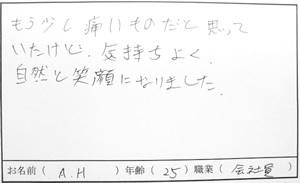 もう少し痛いものだと思って
いたけど、気持ちよく、
自然と笑顔になりました。
お名前（ A.H ）年齢（ 25 ）職業（ 会社員 ）